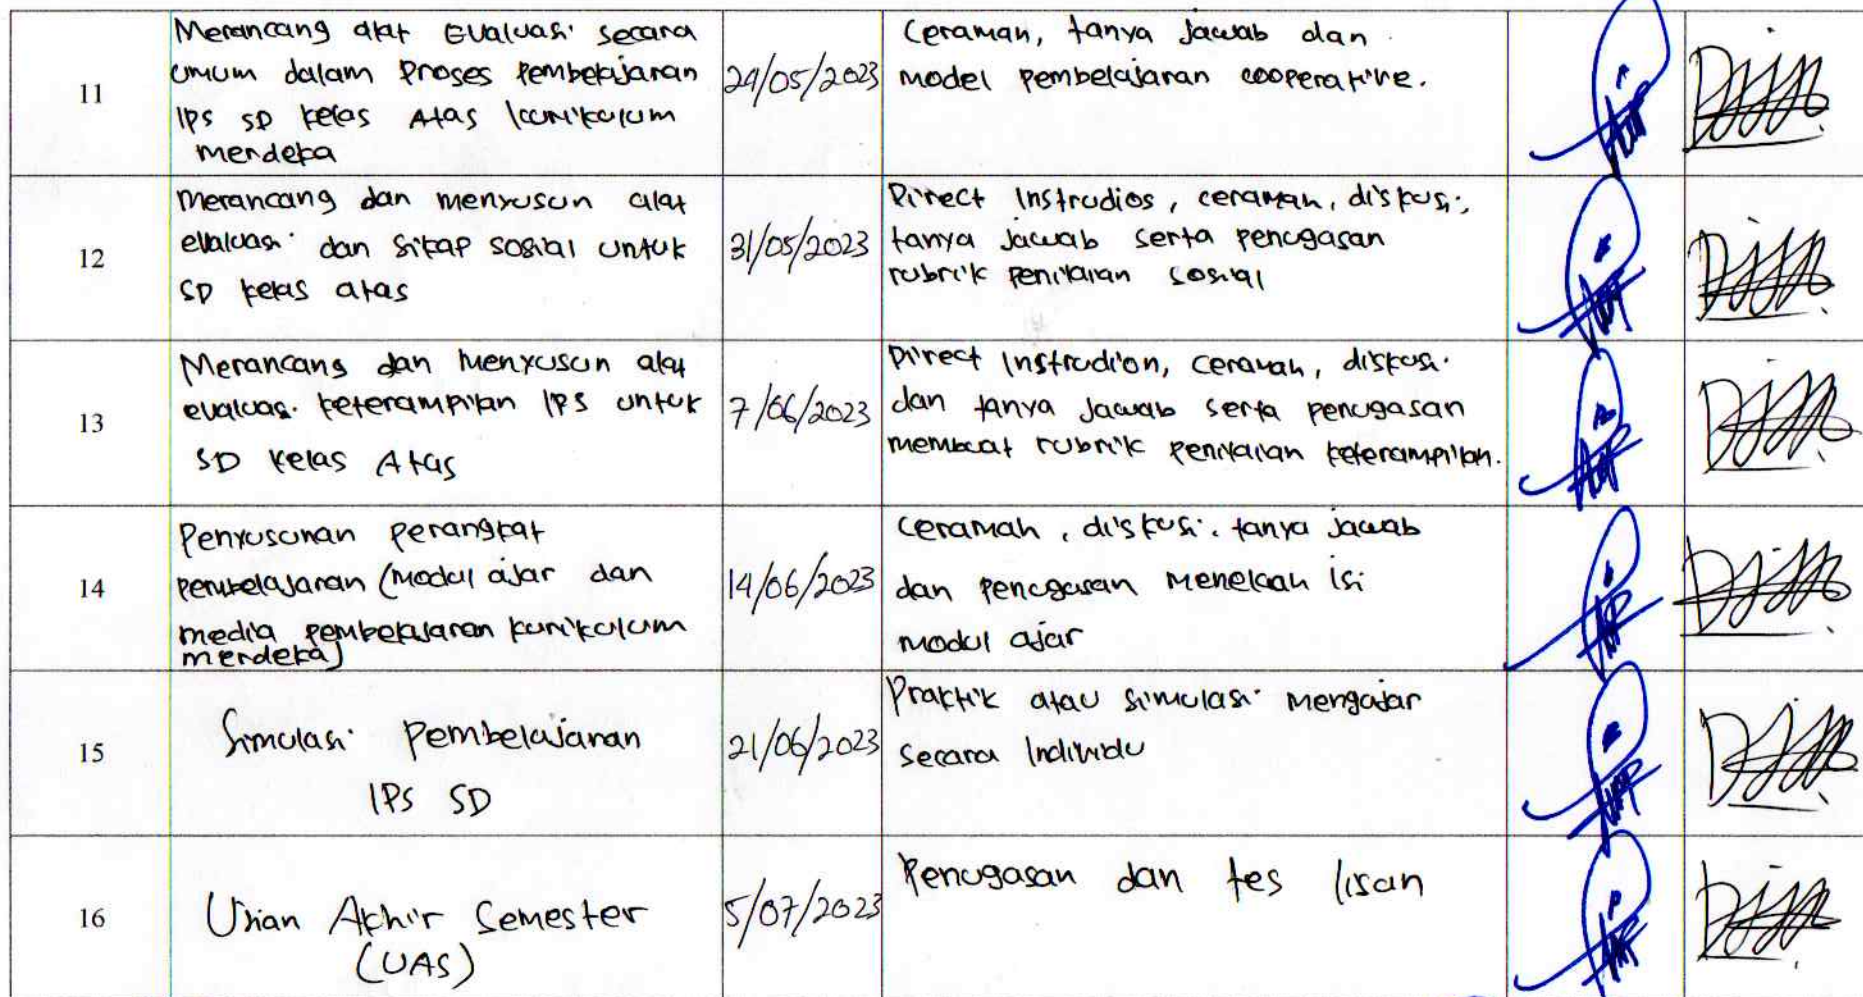 11
Merancang alat evaluasi secara
umum dalam proses pembelajaran
IPS SD kelas Atas kurikulum
merdeka
24/05/2023
Ceramah, tanya jawab dan
model pembelajaran cooperative.
12
Merancang dan menyusun alat
evaluasi dan sikap sosial untuk
SD kelas atas
31/05/2023
Direct Instrudios, ceramah, diskusi,
tanya jawab serta penugasan
rubrik penilaian sosial
13
Merancang dan menyusun alat
evaluasi keterampilan IPS untuk
SD kelas Atas
7/06/2023
Direct Instrudion, ceramah, diskusi
dan tanya jawab serta penugasan
membuat rubrik penilaian keterampilan.
14
Penyusunan perangkat
pembelajaran (modul ajar dan
media pembelajaran kurikulum
merdeka)
14/06/2023
ceramah, diskusi, tanya jawab
dan penugasan menelaah isi
modul ajar
15
Simulasi Pembelajaran
IPS SD
21/06/2023
Praktik atau simulasi mengajar
secara individu
16
Ujian Akhir Semester
(UAS)
5/07/2023
Penugasan dan tes lisan